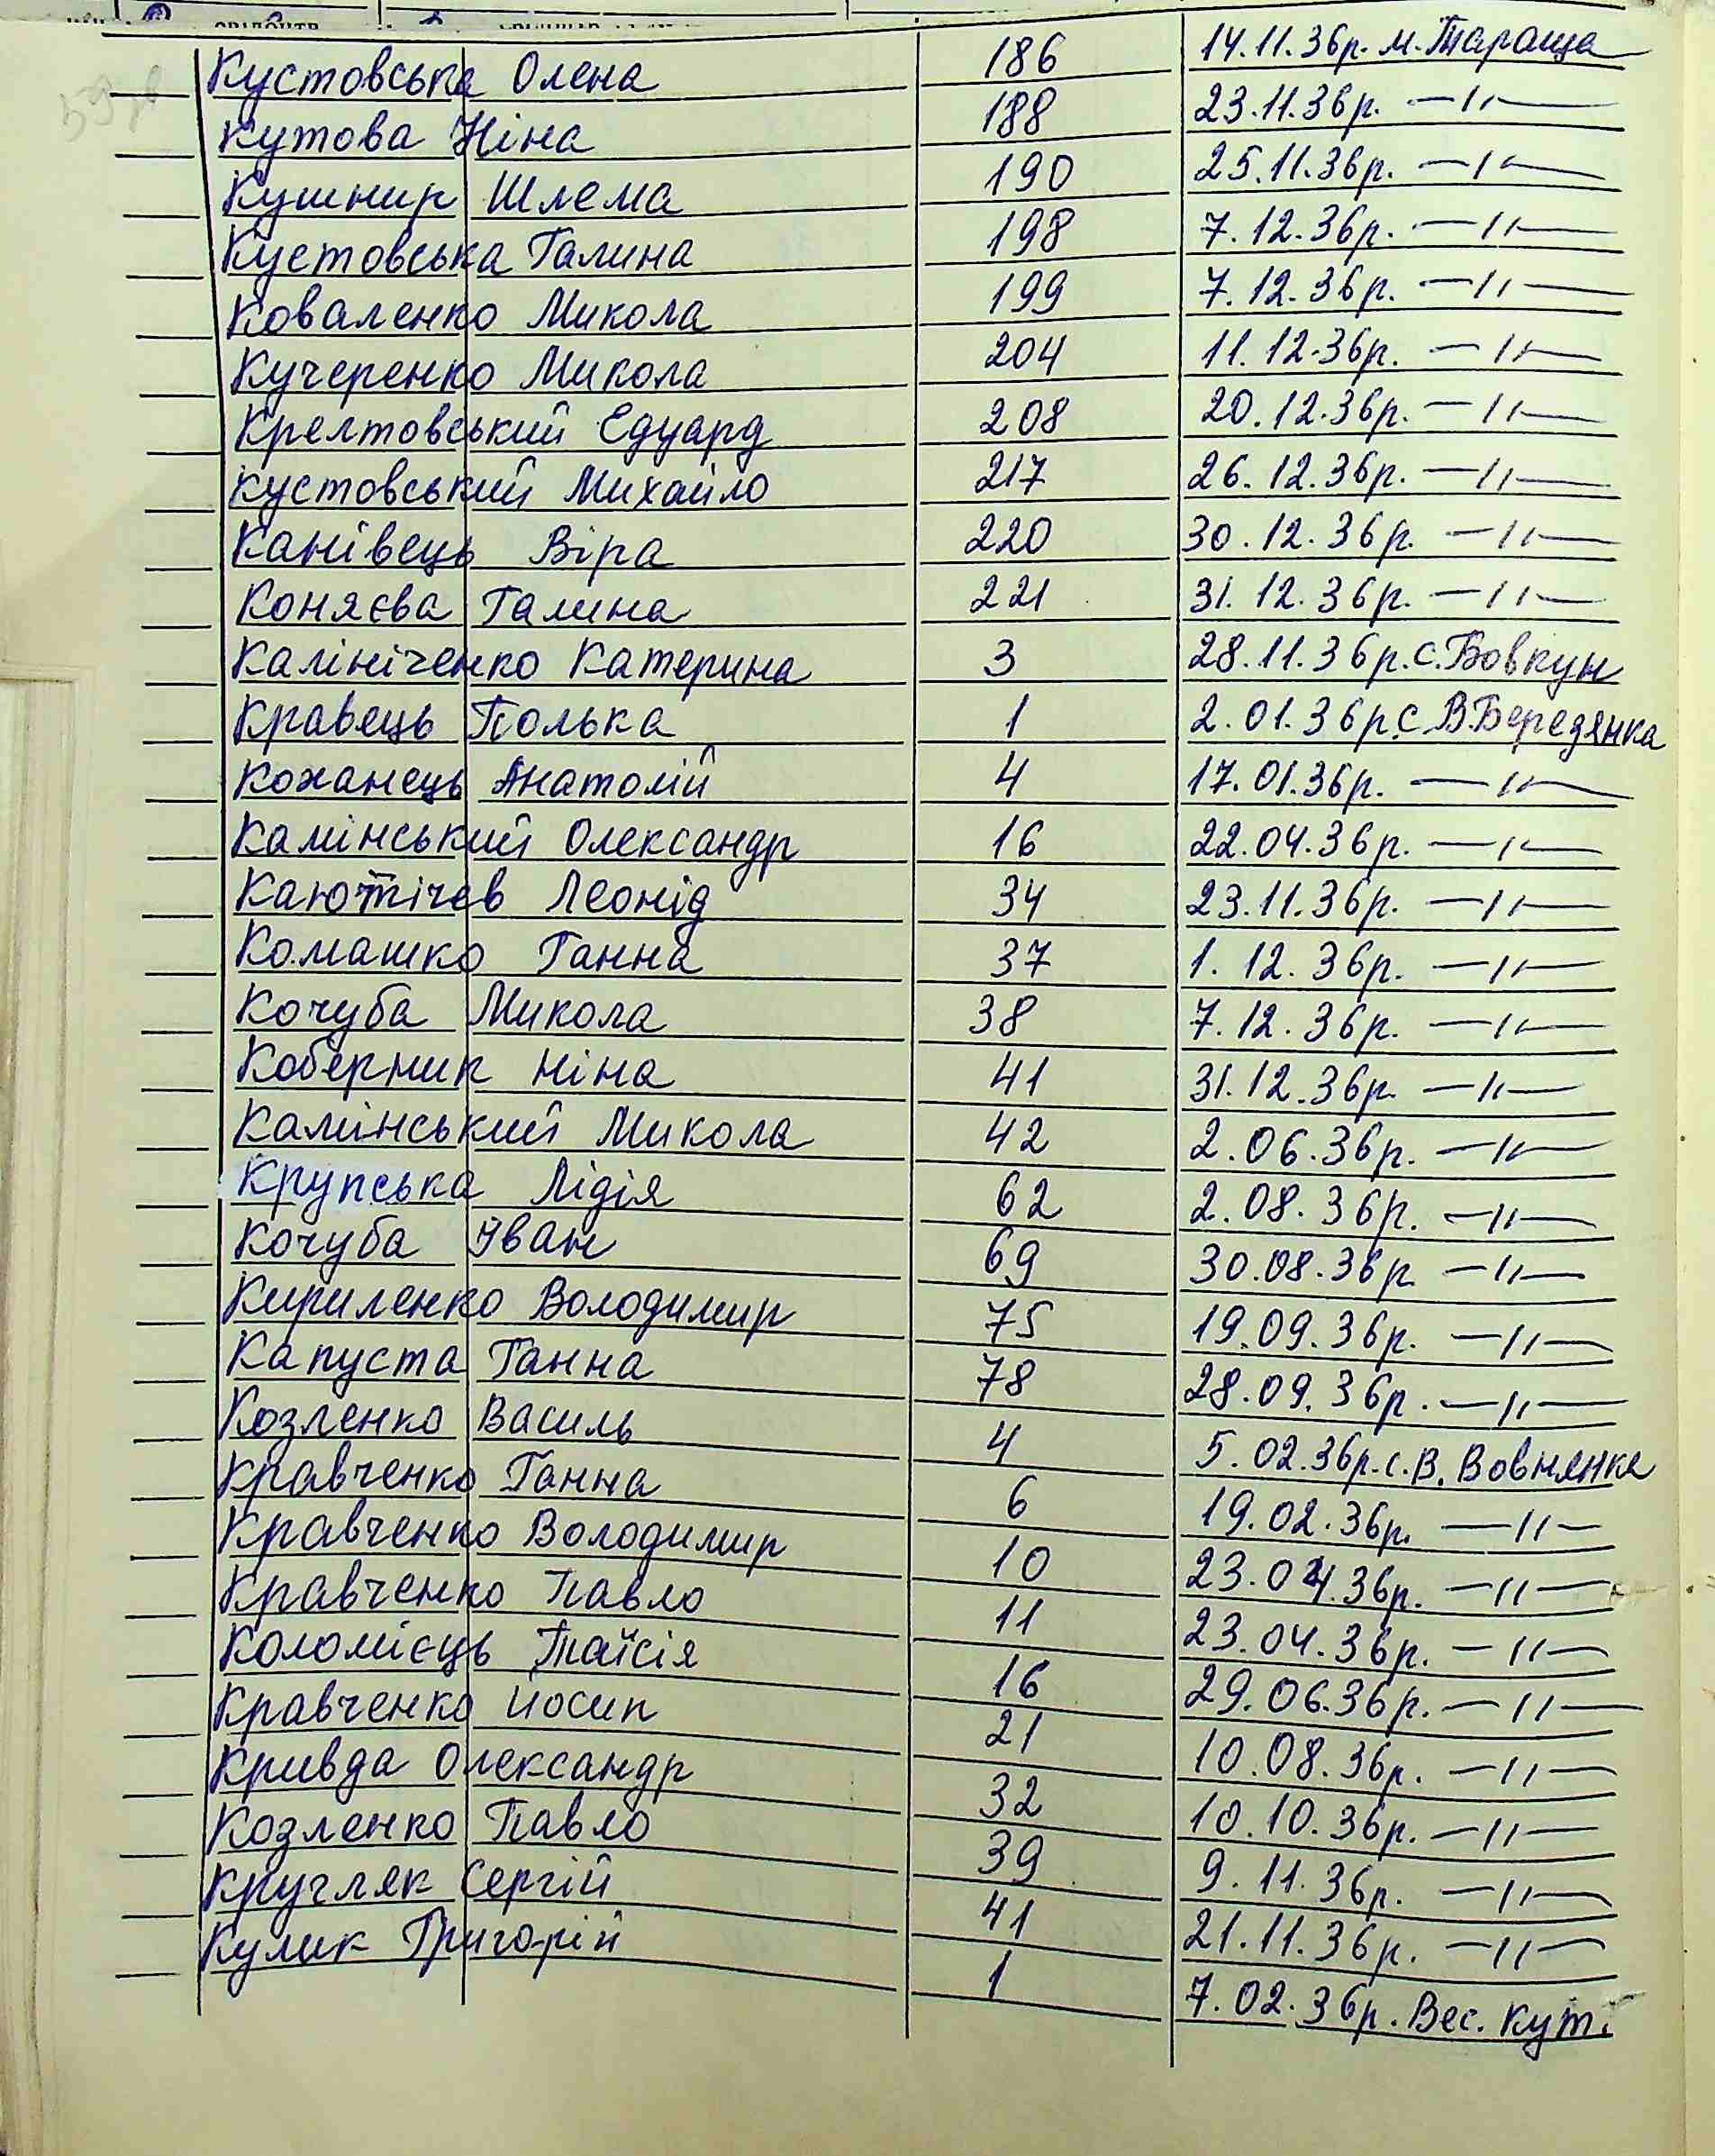 Кустовська Олена 186 14.11.36р. м. Тараща
Кутова Ніна 188 23.11.36р. —11—
Кушнир Шлема 190 25.11.36р. —11—
Кустовська Галина 198 7.12.36р. —11—
Коваленко Микола 199 7.12.36р. —11—
Кучеренко Микола 204 11.12.36р. —11—
Крелтовський Едуард 208 20.12.36р. —11—
Кустовський Михайло 217 26.12.36р. —11—
Канівець Віра 220 30.12.36р. —11—
Коняєва Галина 221 31.12.36р. —11—
Калініченко Катерина 3 28.11.36р. с. Бовкун
Кравець Полька 1 2.01.36р. с. В.Березянка
Кожанець Анатолій 4 17.01.36р. —11—
Камінський Олександр 16 22.04.36р. —11—
Леонід 34 23.11.36р. —11—
Комашко Ганна 37 1.12.36р. —11—
Кочуба Микола 38 7.12.36р. —11—
Коберник Ніна 41 31.12.36р. —11—
Камінський Микола 42 2.06.36р. —11—
Крупська Лідія 62 2.08.36р. —11—
Кочуба Іван 69 30.08.36р —11—
Кириленко Володимир 75 19.09.36р. —11—
Капуста Ганна 78 28.09.36р. —11—
Козленко Василь 4 5.02.36р. с. В. Вовнянка
Кравченко Ганна 6 19.02.36р. —11—
Кравченко Володимир 10 23.04.36р. —11—
Кравченко Павло 11 23.04.36р. —11—
Коломієць Таїсія 16 29.06.36р. —11—
Кравченко Йосип 21 10.08.36р. —11—
Кривда Олександр 32 10.10.36р. —11—
Козленко Павло 39 9.11.36р. —11—
Кругляк Сергій 41 21.11.36р. —11—
Кулик Григорій 1 7.02.36р. Вес. Кут.